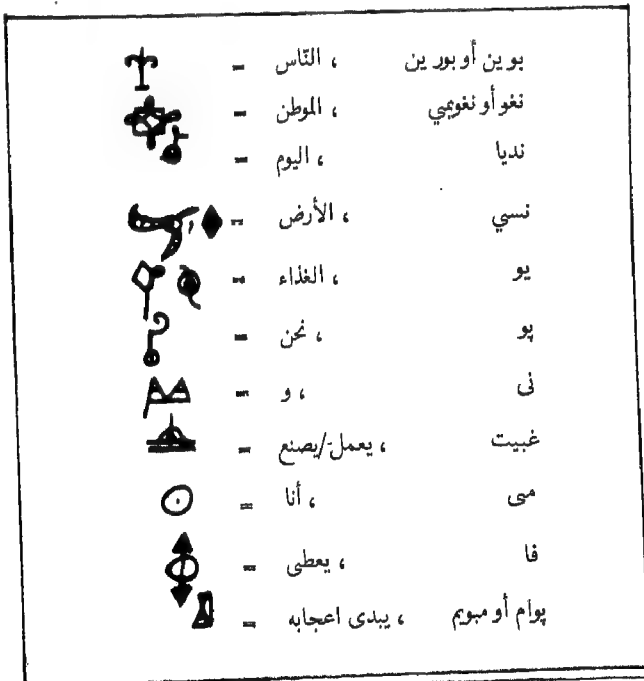 بوين أو بورين ، النّاس =
نغو أو نغويمي ، الموطن =
نديا ، اليوم =
نسي ، الأرض =
يو ، الغذاء =
پو ، نحن =
نى ، و =
غبيت ، يعمل/يصنع =
مى ، أنا =
فا ، يعطى =
پوام أو مبويم ، يبدى اعجابه =